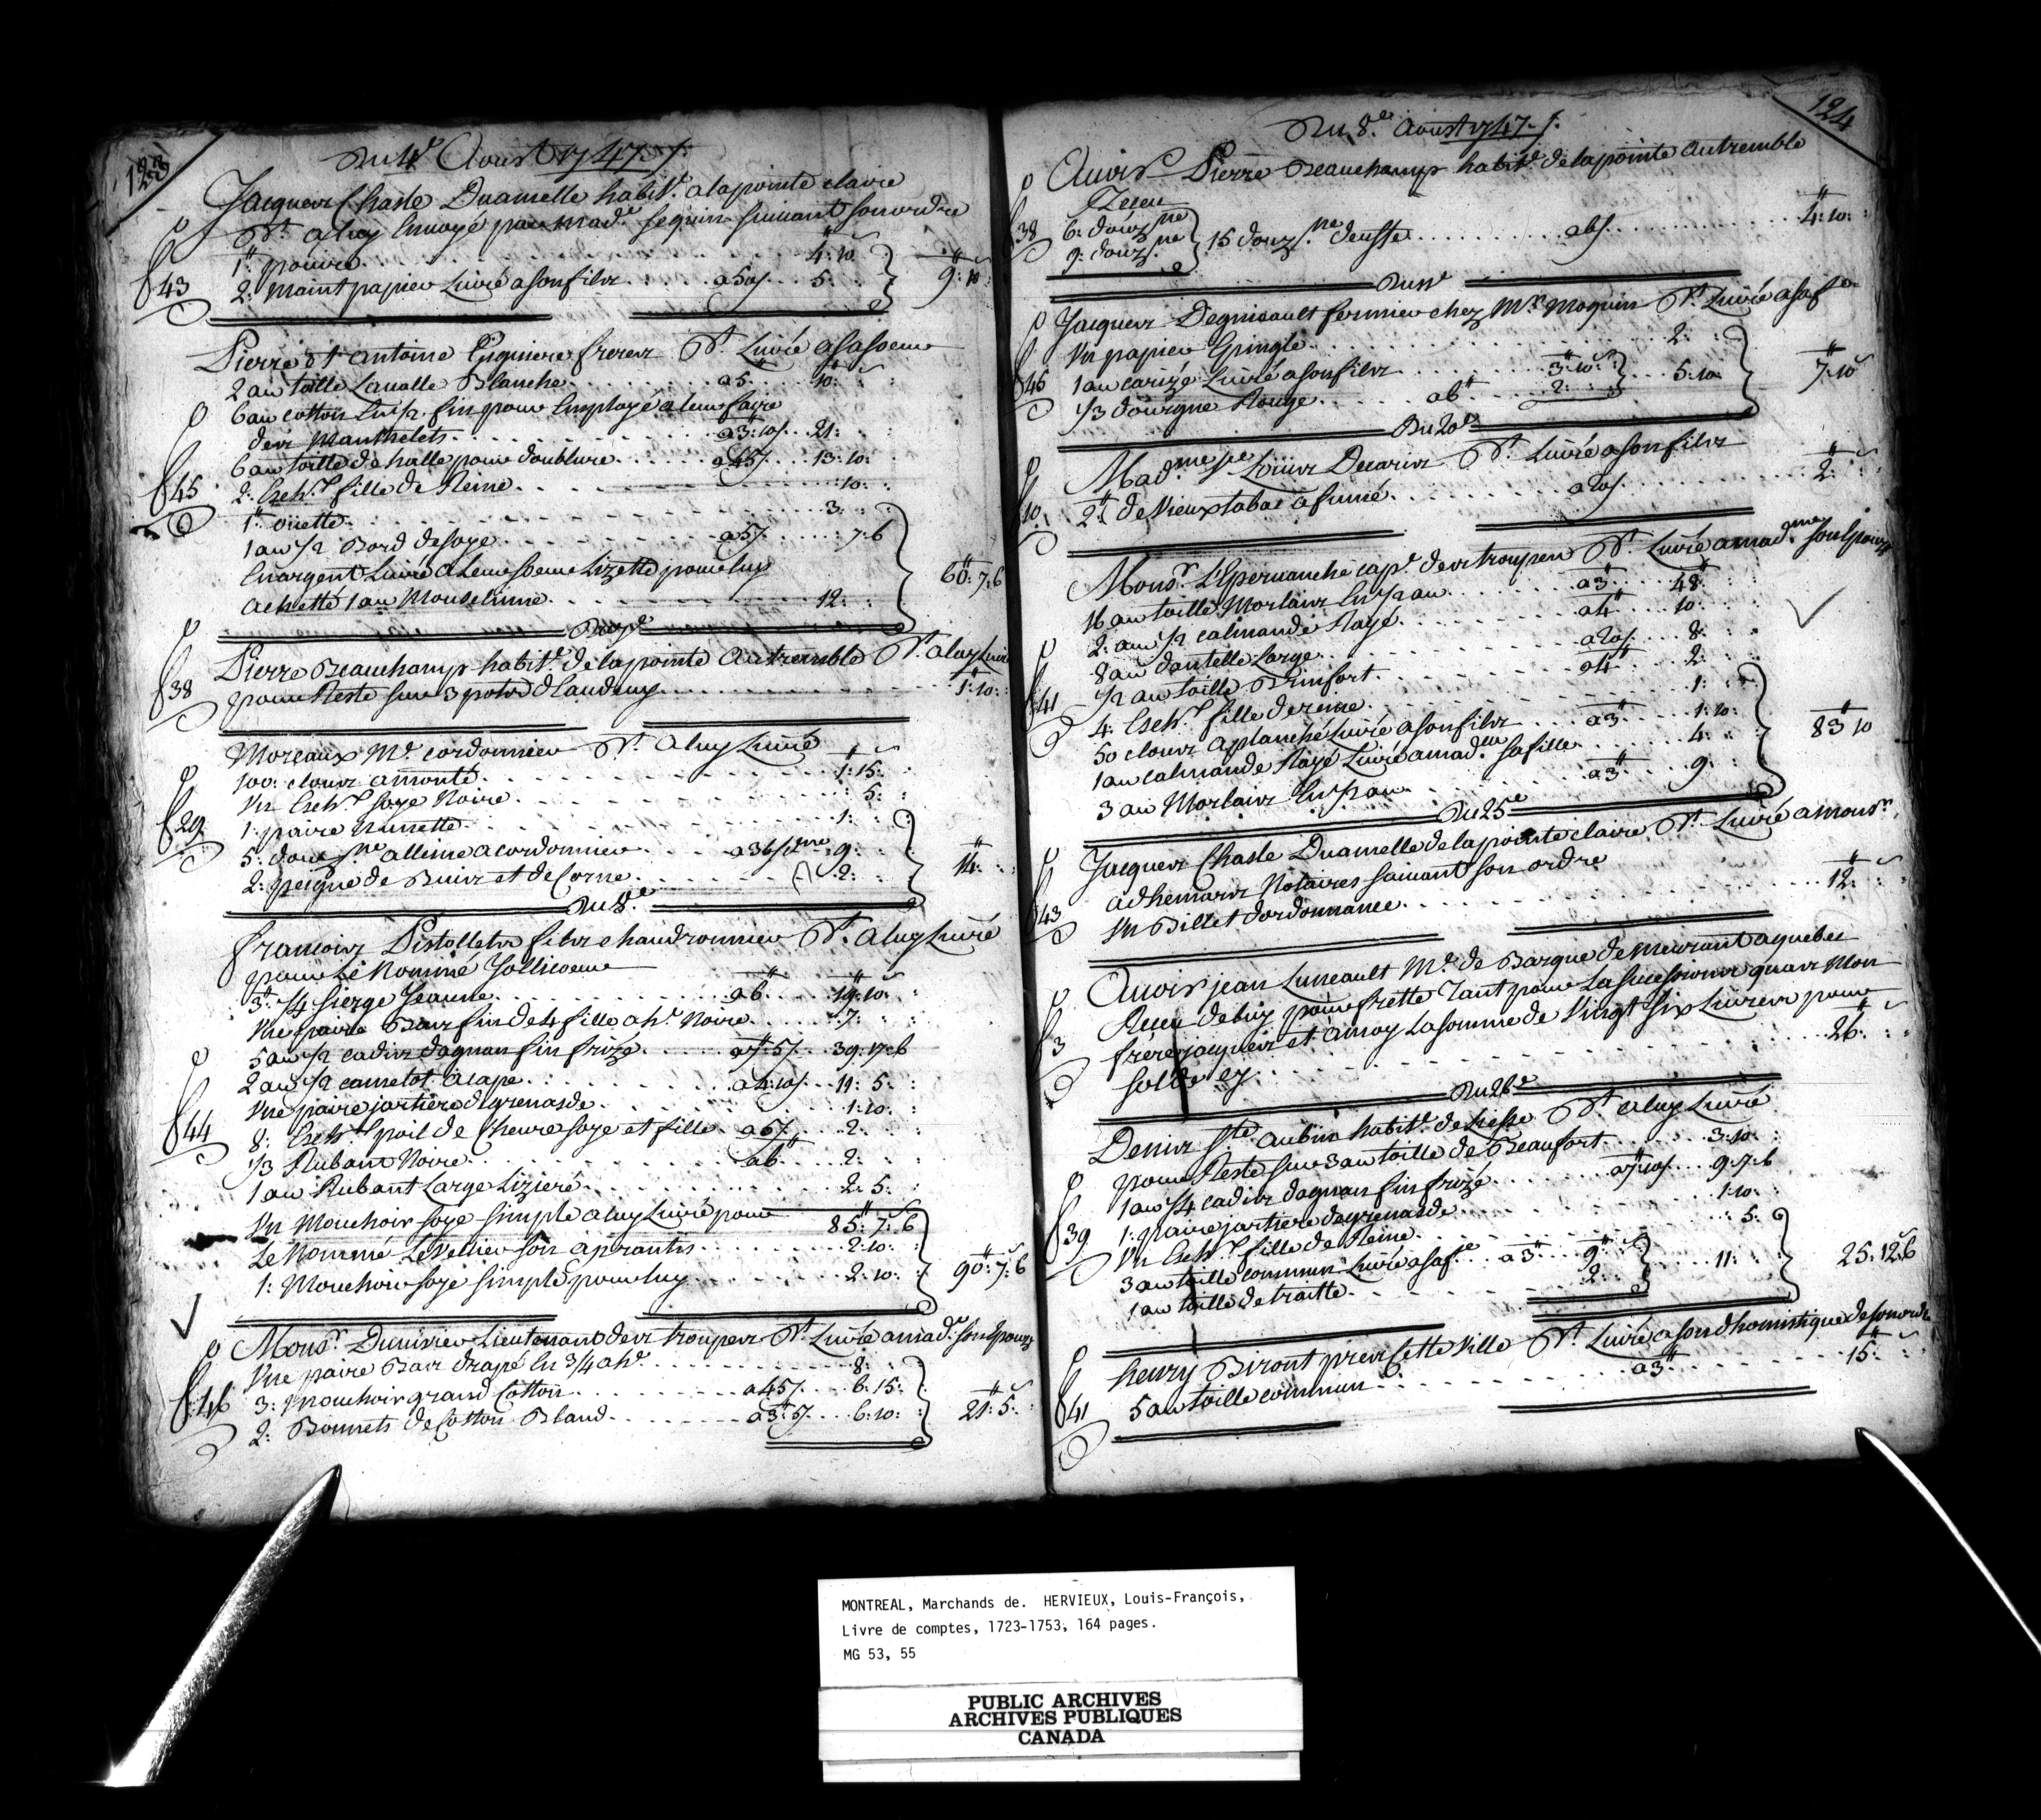 123
Du 4e Aoust 1747 /.
Jacques Chasle Duamelle habit.t a la pointe claire
D.t a luy Envoyé par mad.e Seguin suivant son ordre
1# poivre . . . 4: 10
43 2: maint papier Livré a son fils . . . a 50/ . . . 5: 9#: 10
Pierre et antoine frerer D.t Livré a sa soeur
2 au toille Lavalle Blanche . . . a 5# . . . 10#
6 au cotton En 1/2 fin pour Employé a leur faire
der Manthelets . . . a 3#: 10/ . . . 21:
6 au toille de halle pour doublure . . . a 45/ . . . 13: 10:
45 2: Echt. fille de Reine . . . 10:
1# ouette . . . 3:
1 au 1/2 Bord de soye . . . a 5/ . . . 7: 6
En argent Livré a Leur soeur Lizette pour luy
achetté 1 au Mouseline . . . 12: 60#: 7: 6
Du 7e
Pierre Beauchamp habit.t de la pointe au tremble D.t a luy Livré
38 pour Reste sur 3 pots d'Laudevuy . . . 1#: 10:
Moreaux M.e cordonnier D.t a luy Livré
100: clour a monté . . . 1#: 15:
Un Echt. soye Noire . . . 5:
29 1: paire Nunette . . . 1:
5: douz.ne alleine a cordonnier . . . a 36/ d.ne 9:
2: peigne de Buis et de Corne . . . 2: 14#:
Du 8.e
francois Pistollets fils chaudronnier D.t a luy Livré
pour Le Nommé Jollicoeur
3#: 1/4 sierge Jeaune . . . a 6# . . . 19#: 10:
Une paire Bas fin de 4 fille a h.e Noire . . . 7:
5 au 1/2 cadis dagnan fin frizé . . . a 7#: 5/ . . . 39: 17: 6
2 au 1/2 camelot a cape . . . a 4#: 10/ . . . 11: 5:
Une paire jartiere de grenasde . . . 1: 10:
44 8: Echt. poil de Chevre soye et fille . . . a 5/ . . . 2:
1/3 Rubant Noire . . . a 6# . . . 2:
1 au Rubant Large Liziere . . . 2: 5:
85#: 7: 6
Un Mouchoir soye simple a luy Livré pour
Le Nommé Letellier son aprantis . . . 2: 10:
1: Mouchoir soye simple pour luy . . . 2: 10: 90#: 7: 6
Mons.r Dunivier Lieutenant der trouper D.t Livré a mad.e son Epouze
Une paire Bas drapé En 3/4 a h.e . . . 8:
46 3: mouchoir grand Cotton . . . a 45/ . . . 6: 15:
2: Bonnets de Cotton Bland . . . a 3#: 5/ . . . 6: 10: 21#: 5:
124
Du 8.e Aoust 1747 /.
Avoir Pierre Beauchamp habit.t de la pointe au tremble
Receu
38 6: douz.ne
9: douz.ne 15 douz.ne deuffs . . . a 6/ . . . 4#: 10:
Jacquer Deguisault fermier chez M.r Moquin D.t Livré a sa f.e
Un papier Epingle . . . 2:
45 1 au carizé Livré a son fils . . . 3#: 10
1/3 dourgne Rouge . . . a 6# . . . 2: 5: 10 7#: 10
Du 20e
Mad.me v.e Louis Decaris D.t Livré a son fils
10 2# de Vieux tabac a fumé . . . a 20/ . . . 2#:
Mons.r L'Epervanche cap.e der trouper D.t Livré a mad.me son Epouze
16 au toille Morlaix En 1/2 au . . . a 3# . . . 48#
2: au 1/2 calmande Rayé . . . a 4# . . . 10:
8 au dantelle Large . . . a 20/ . . . 8:
41 1/2 au toille Brinfort . . . a 4# . . . 2:
4: Echt. fille de reine . . . 1:
50 clour a planché Livré a son fils . . . 1: 10:
1 au calmande Rayé Livré a mad.lle sa fille . . . a 3# . . . 4:
3 au Morlaix En 1/2 au . . . a 3# . . . 9: 83#: 10
Du 25e
Jacquer Chasle Duamelle de la pointe claire D.t Livré a mons.r
adhemar Notaire suivant son ordre
43 Un Billet d'ordonnance . . . 12#:
Avoir jean Luneault M.e de Barque demeurant a quebec
Receu de luy pour frette tant pour La sucession quar Mon
3 frere jacquer et a moy La somme de Vingt Six Livrer pour
solde cy . . . 26#:
Du 26e
Denir St. aubin habit.t de D.t a luy Livré
pour Reste sur 3 au toille de Beaufort . . . 3: 10:
1 au 1/4 cadis dagnan fin frizé . . . a 7#: 10/ . . . 9: 7: 6
39 1: paire jartiere de grenasde . . . 1: 10:
Un Echt. fille de Reine . . . 5:
3 au toille commun Livré a sa f.e . . . a 3# . . . 9#
1 au toille de traitte . . . 2: 11: 25: 12: 6
henry Biront prer Cette Ville D.t Livré a son dhomistique de son ordre
41 5 au toille commun . . . a 3# . . . 15#:
MONTREAL, Marchands de. HERVIEUX, Louis-François,
Livre de comptes, 1723-1753, 164 pages.
MG 53, 55
PUBLIC ARCHIVES
ARCHIVES PUBLIQUES
CANADA